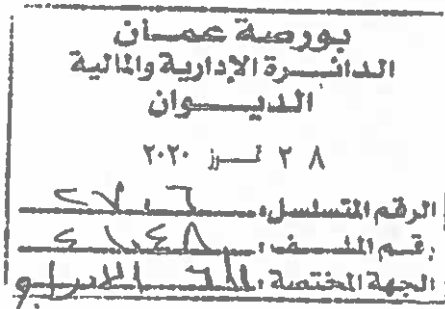 بورصة عمان
الدائرة الإدارية والمالية
الديوان
٢٨ تموز ٢٠٢٠
الرقم المتسلسل:
رقم الملف: ٤١٠٤٨
الجهة المختصة: